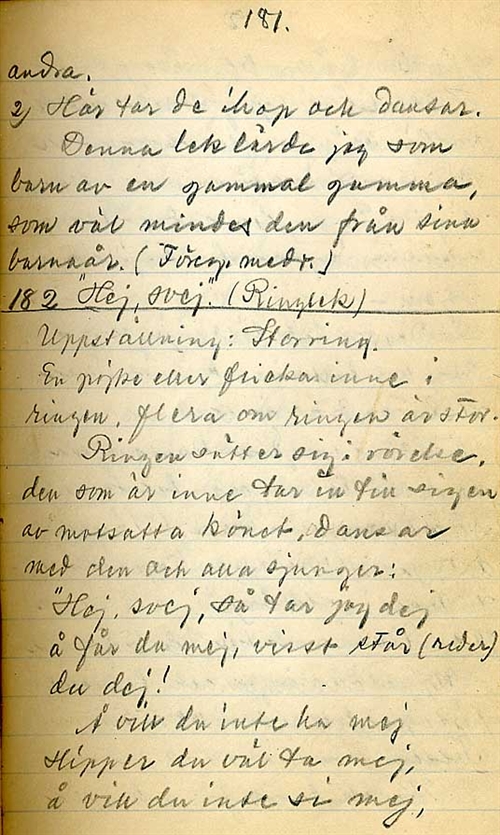 181.
andra.
2) Här tar de ihop och dansar.
Denna lek lärde jag som
barn av en gammal gumma,
som väl mindes den från sina
barnaår. (Föreg. medr.)
182 "Hej, svej". (Ringlek)
Uppställning: Storring.
En pojke eller flicka inne i
ringen, flera om ringen är stor.
Ringen sätter sig i rörelse,
den som är inne tar in till sig en
av motsatta könet, dansar
med den och alla sjunger:
"Hej, svej, så tar jag dej
å får du mej, visst står (reder)
du dej!
Å vill du inte ha mej
slipper du väl ta mej,
å vill du inte si mej,